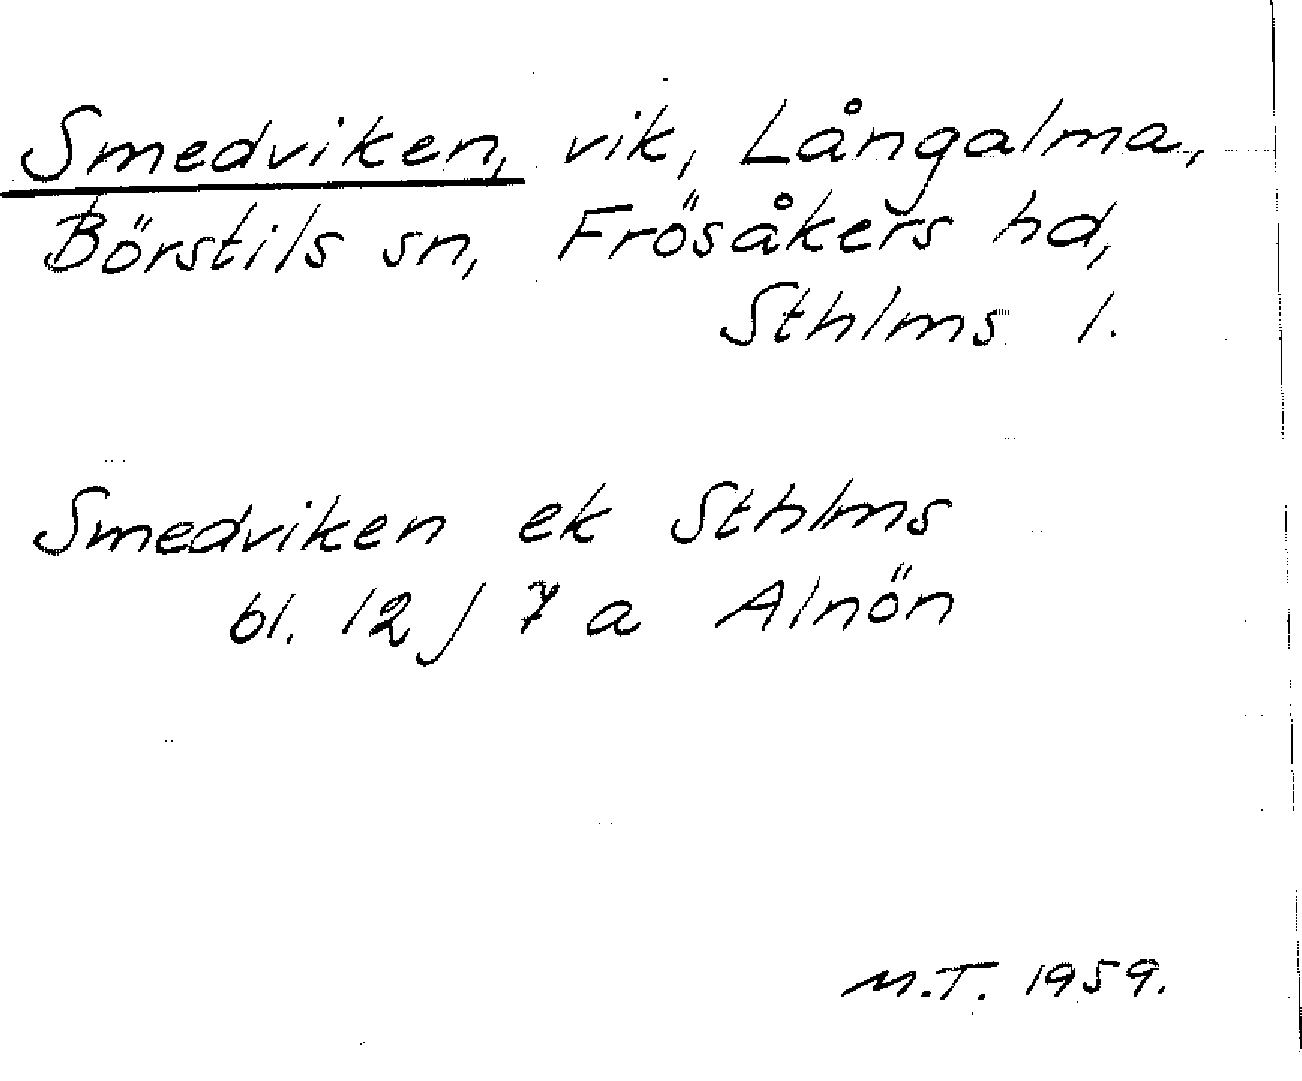 Smedviken, vik, Långalma,
Börstils sn, Frösåkers hd,
Sthlms l.
Smedviken ek Sthlms
bl. 12 J 7 a Alnön
M.T. 1959.